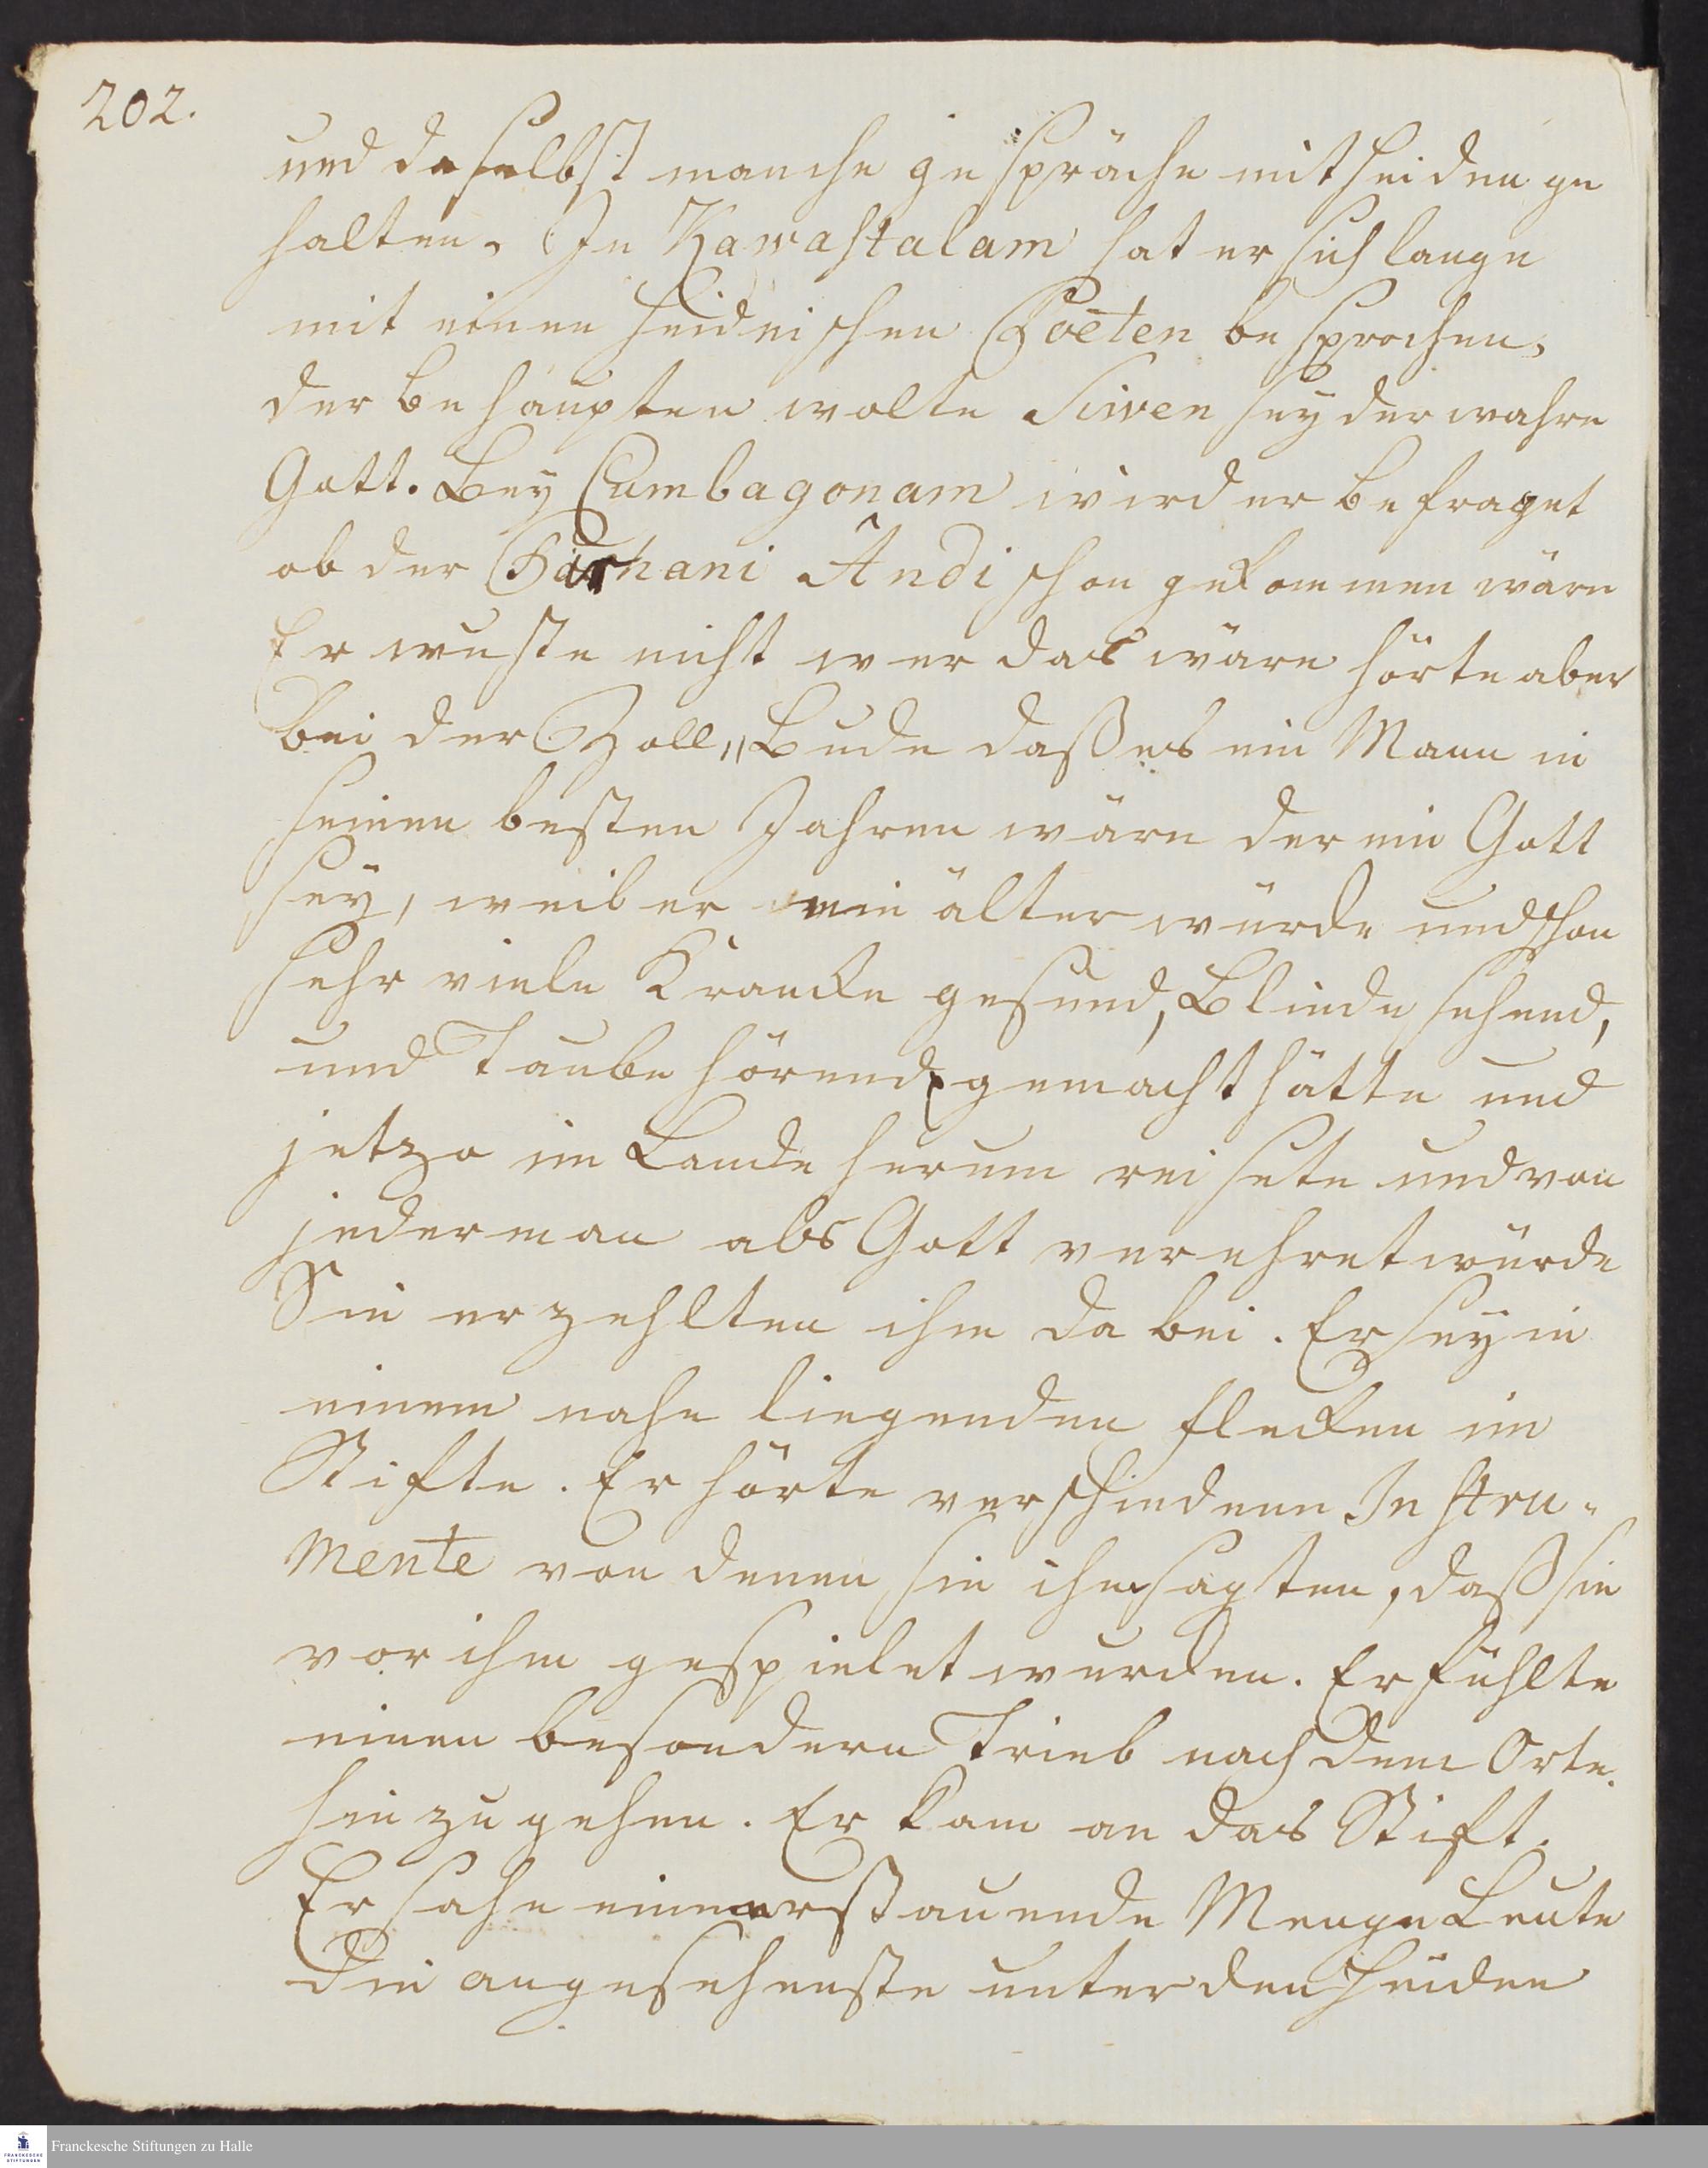 202.
und daselbst manche gespräche mit Heiden ge
halten. In Kawastalam hat er sich lange
mit einen heidnischen Poëten besprochen,
der behaupten wolte Siwen sey der wahre
Gott. Bey Cumbagonam wird er befraget
ob der Andi schon gekommen wäre
Er wuste nicht wer das wäre hörte aber
bei der Zoll,, Bude daß es ein Mann in
seinen besten Jahren wäre der ein Gott
seÿ, weil er nie älter würde und schon
sehr viele Krancke gesund, Blinde sehend,
und Taube hörend gemacht hätte und
jetzo im Lande herum reisete und von
jederman als Gott verehret würde
Sie erzehlten ihm dabei. Er seÿ in
einem nahe liegenden flecken im
Stifte. Er hörte verschiedene Instru-
mente von denen sie ihm sagten, daß sie
vor ihm gespielet wurden. Er fühlte
einen besondern Trieb nach dem Orte
hinzugehen. Er kam an das Stift.
Er sahe eine erstauende Menge Leute
Die angesehenste unter den Heiden
Franckesche Stiftungen zu Halle